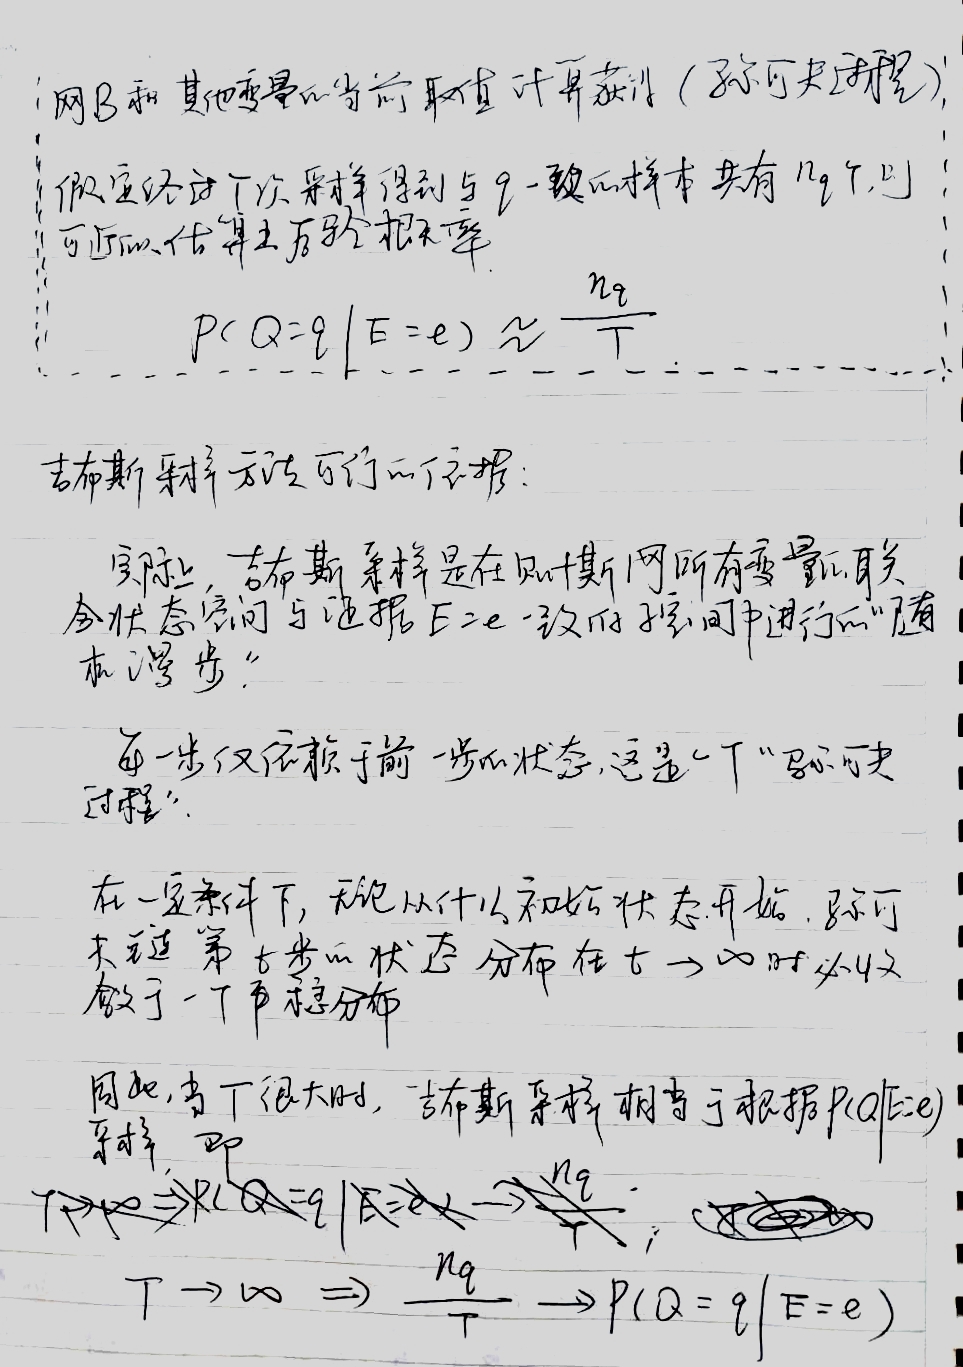 网B和其他变量的当前取值计算获得(马尔可夫过程)
假定经过T次采样得到与q一致的样本共有nq个,则
可近似估算出后验概率
P(Q=q|E=e) ≈ nq/T
吉布斯采样方法可行的依据:
实际上,吉布斯采样是在贝叶斯网所有变量的联
合状态空间与证据E=e一致的子空间中进行的"随
机漫步"
每一步仅依赖于前一步的状态,这是一个"马尔可夫
过程".
在一定条件下,无论从什么初始状态开始,马尔可
夫链第t步的状态分布在t→∞时必收
敛于一个平稳分布
因此,当T很大时,吉布斯采样相当于根据P(Q|E=e)
采样,即
T→∞ ⇒ P(Q=q|E=e) → nq/T ;
T→∞ ⇒ nq/T → P(Q=q|E=e)